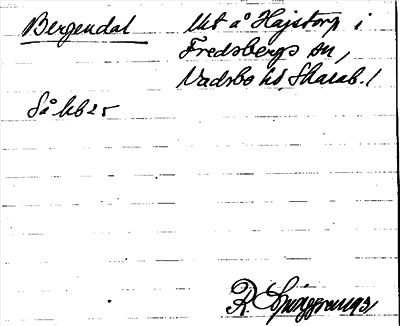 Bergendal Utå Hajstorp i
Fredsbergs sn,
Vadsbo hd, Skarab. l
Så kb 25
R. Ljunggren 1931